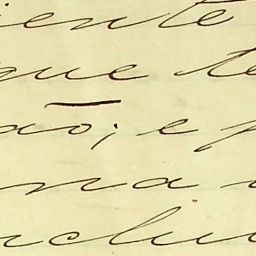 iente
que te
ão; e p
na
nclui